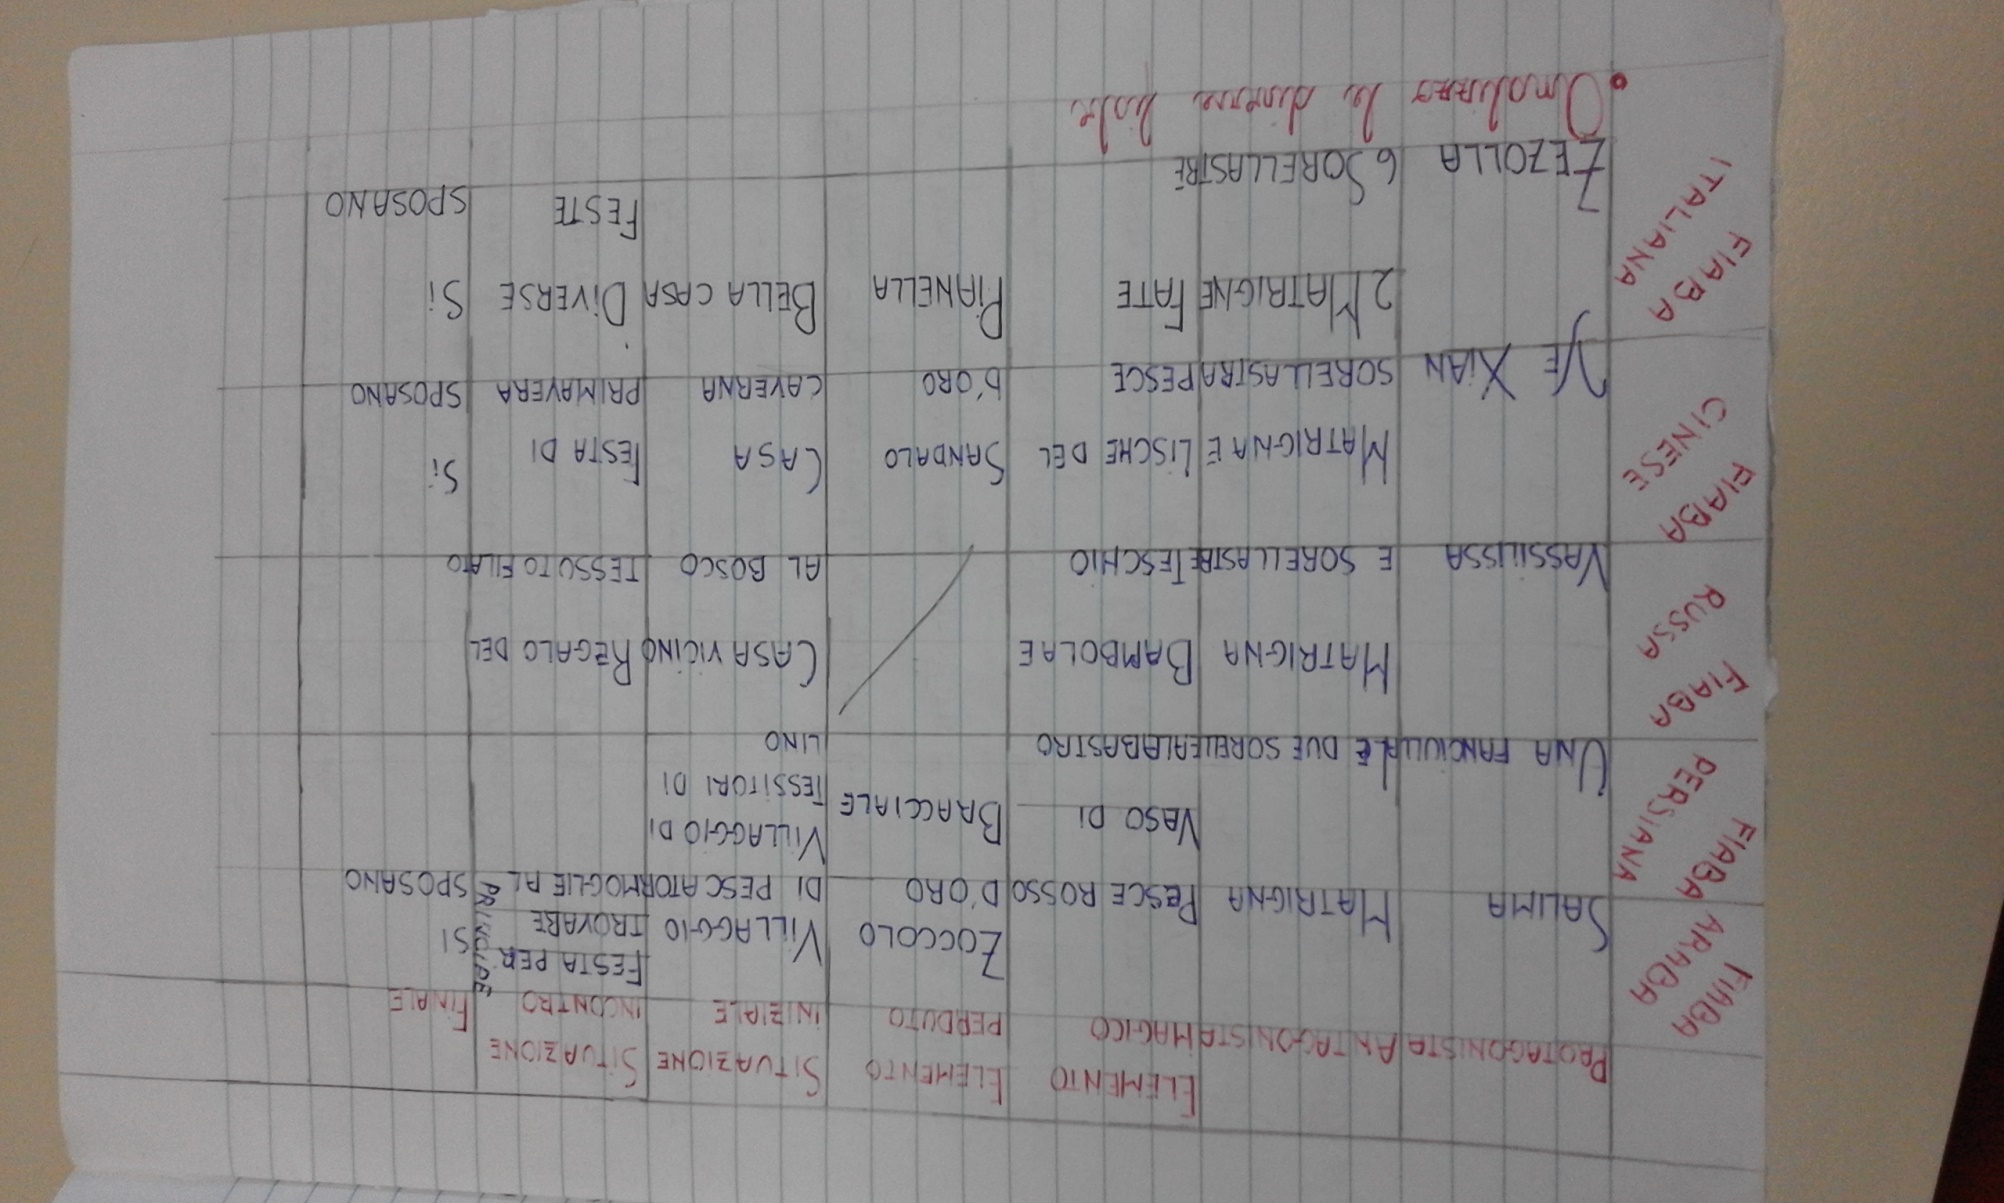 PROTAGONISTA
ANTAGONISTA
ELEMENTO
MAGICO
ELEMENTO
PERDUTO
SITUAZIONE
INIZIALE
SITUAZIONE
INCONTRO
FINALE
FIABA
ARABA
SALIMA
MATRIGNA
PESCE ROSSO
ZOCCOLO
D'ORO
VILLAGGIO
DI PESCATORI
FESTA PER
TROVARE
MOGLIE AL
PRINCIPE
SI
SPOSANO
FIABA
PERSIANA
UNA FANCIULLA
LE DUE SORELLE
VASO DI
ALABASTRO
BRACCIALE
VILLAGGIO DI
TESSITORI DI
LINO
FIABA
RUSSA
VASSILISSA
MATRIGNA
E SORELLASTRE
BAMBOLA E
TESCHIO
CASA VICINO
AL BOSCO
REGALO DEL
TESSUTO FILATO
FIABA
CINESE
YE XIAN
MATRIGNA E
SORELLASTRA
LISCHE DEL
PESCE
SANDALO
D'ORO
CASA
CAVERNA
FESTA DI
PRIMAVERA
Si
SPOSANO
FIABA
ITALIANA
ZEZOLLA
2 MATRIGNE
6 SORELLASTRE
FATE
PIANELLA
BELLA CASA
DIVERSE
FESTE
Si
SPOSANO
• Analizzo le diverse fiabe